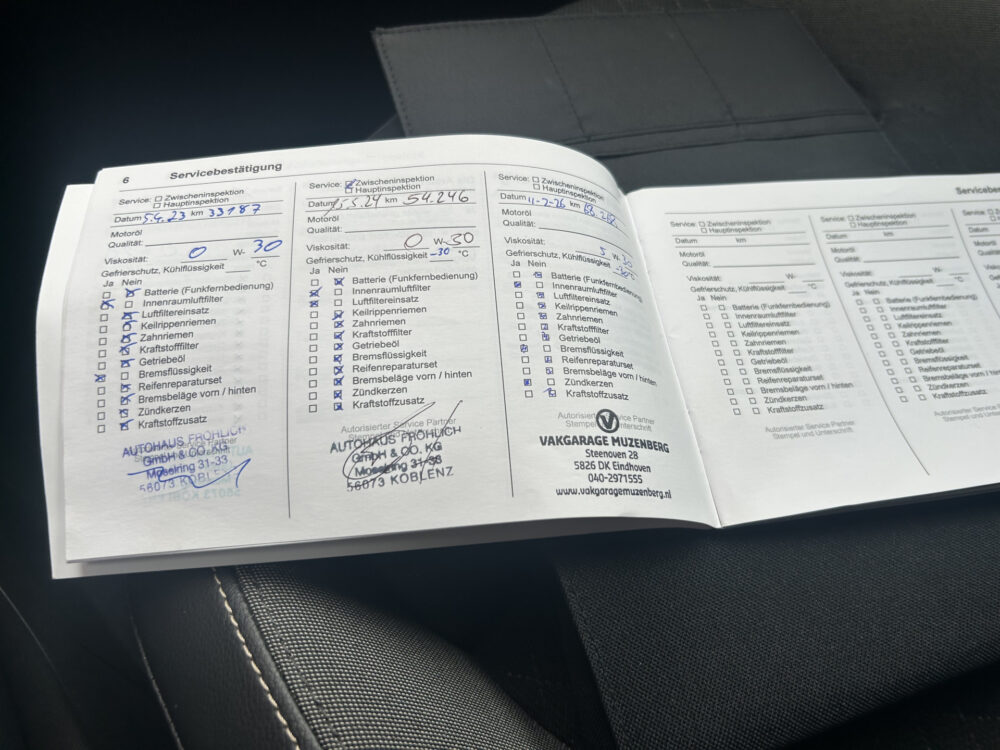 6 Servicebestätigung
Service: Zwischeninspektion
Hauptinspektion
Datum 5.4.23 km 33187
Motoröl
Qualität:
Viskosität: 0 W- 30
Gefrierschutz, Kühlflüssigkeit °C
Ja Nein
Batterie (Funkfernbedienung)
Innenraumluftfilter
Luftfiltereinsatz
Keilrippenriemen
Zahnriemen
Kraftstofffilter
Getriebeöl
Bremsflüssigkeit
Reifenreparaturset
Bremsbeläge vorn / hinten
Zündkerzen
Kraftstoffzusatz
AUTOHAUS FRÖHLICH
GmbH & CO. KG
Moselring 31-33
56073 KOBLENZ
Service: Zwischeninspektion
Hauptinspektion
Datum 15.5.24 km 54.246
Motoröl
Qualität:
Viskosität: 0 W- 30
Gefrierschutz, Kühlflüssigkeit -30 °C
Ja Nein
Batterie (Funkfernbedienung)
Innenraumluftfilter
Luftfiltereinsatz
Keilrippenriemen
Zahnriemen
Kraftstofffilter
Getriebeöl
Bremsflüssigkeit
Reifenreparaturset
Bremsbeläge vorn / hinten
Zündkerzen
Kraftstoffzusatz
Autorisierter Service Partner
AUTOHAUS FRÖHLICH
GmbH & CO. KG
Moselring 31-33
56073 KOBLENZ
Service: Zwischeninspektion
Hauptinspektion
Datum 11-2-26 km
Motoröl
Qualität:
Viskosität: 5 W- 30
Gefrierschutz, Kühlflüssigkeit -30 °C
Ja Nein
Batterie (Funkfernbedienung)
Innenraumluftfilter
Luftfiltereinsatz
Keilrippenriemen
Zahnriemen
Kraftstofffilter
Getriebeöl
Bremsflüssigkeit
Reifenreparaturset
Bremsbeläge vorn / hinten
Zündkerzen
Kraftstoffzusatz
Autorisierter Service Partner
Stempel Unterschrift
V
VAKGARAGE MUZENBERG
Steenoven 28
5826 DK Eindhoven
040-2971555
www.vakgaragemuzenberg.nl
Service: Zwischeninspektion
Hauptinspektion
Datum km
Motoröl
Qualität:
Viskosität: W-
Gefrierschutz, Kühlflüssigkeit °C
Ja Nein
Batterie (Funkfernbedienung)
Innenraumluftfilter
Luftfiltereinsatz
Keilrippenriemen
Zahnriemen
Kraftstofffilter
Getriebeöl
Bremsflüssigkeit
Reifenreparaturset
Bremsbeläge vorn / hinten
Zündkerzen
Kraftstoffzusatz
Autorisierter Service Partner
Stempel und Unterschrift
Service: Zwischeninspektion
Hauptinspektion
Datum km
Motoröl
Qualität:
Viskosität: W-
Gefrierschutz, Kühlflüssigkeit °C
Ja Nein
Batterie (Funkfernbedienung)
Innenraumluftfilter
Luftfiltereinsatz
Keilrippenriemen
Zahnriemen
Kraftstofffilter
Getriebeöl
Bremsflüssigkeit
Reifenreparaturset
Bremsbeläge vorn / hinten
Zündkerzen
Kraftstoffzusatz
Autorisierter Service Partner
Stempel und Unterschrift